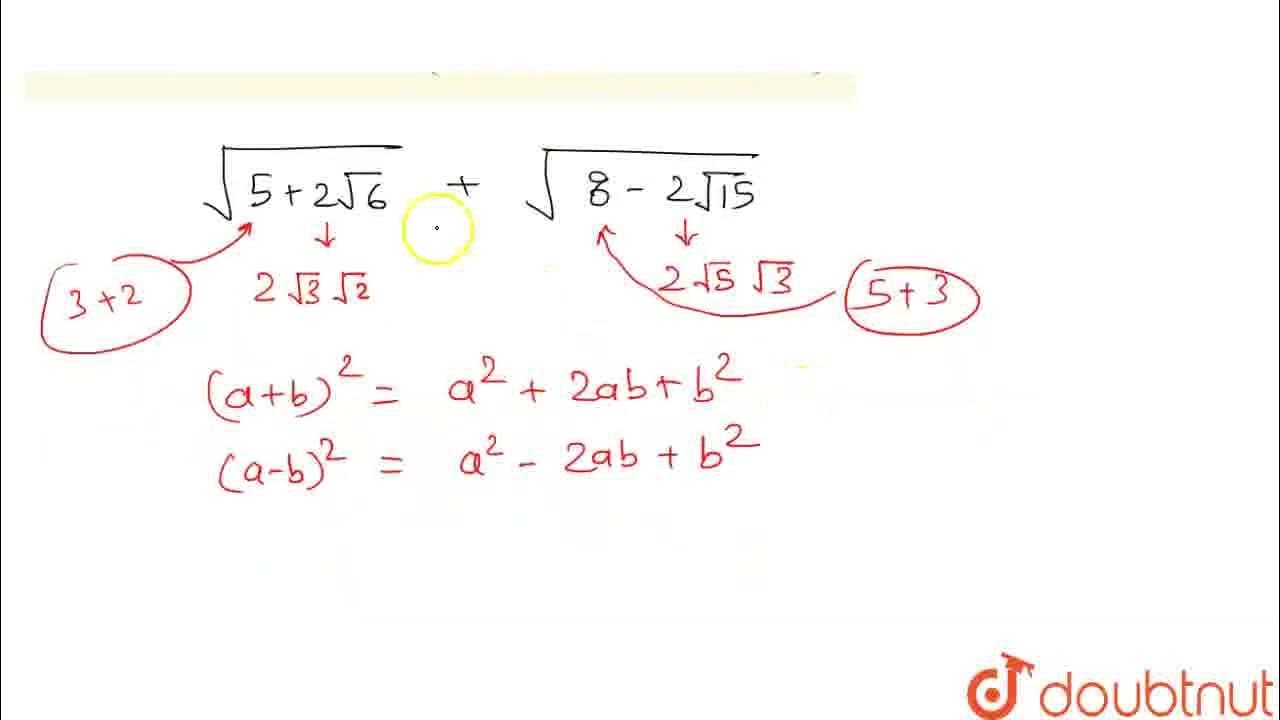 √(5+2√6) + √(8-2√15)
3+2 2√3√2 2√5 √3 5+3
(a+b)² = a² + 2ab+b²
(a-b)² = a² - 2ab + b²
doubtnut